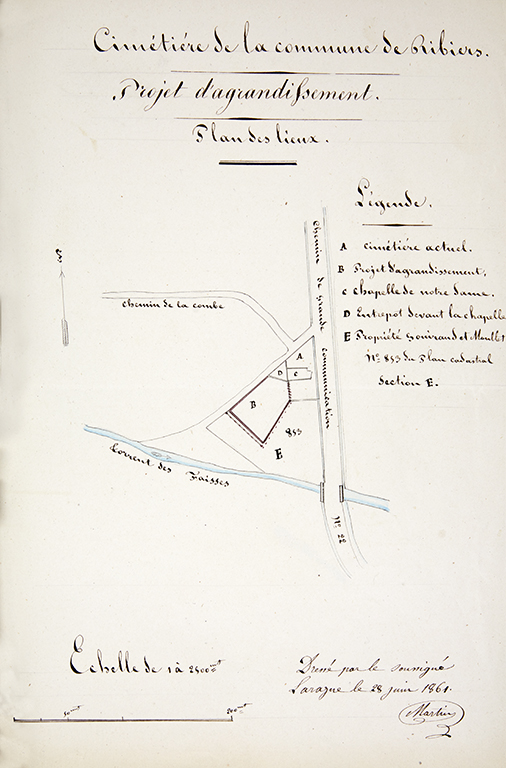 Cimétiére de la commune de Ribiers.
Projet d'agrandissement.
Plan des lieux.
Légende.
A cimétiére actuel.
B Projet d'agrandissement.
C chapelle de notre dame.
D Entrepot devant la chapelle
E Propriété et Moullet
N.º 853 du Plan cadastral
Section E.
Chemin de Grande communication
N.º 22
chemin de la combe
A
D
C
B
853
E
Torrent des Faisses
Echelle de 1 à 2500
50 mt
200 mt
Dressé par le soussigné
Laragne le 28 juin 1861.
Martin